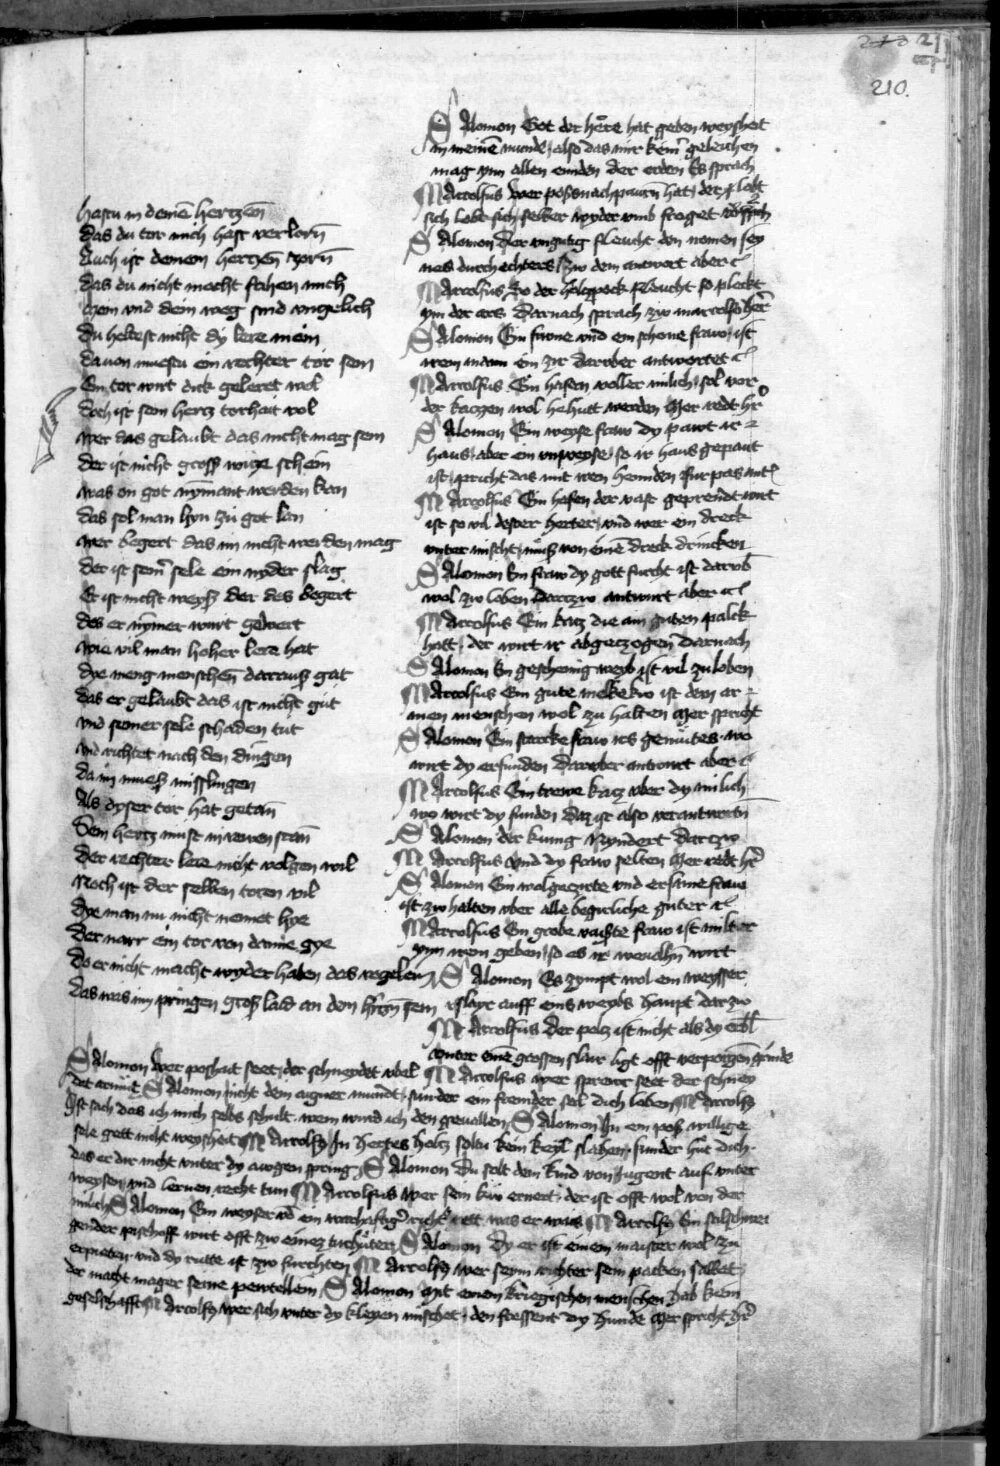 210.
hastu in deinē hertzen
das du tor mich hast verlorn̄
Auch ist deinem hertzen zorn̄
das du nicht macht sehen mich
mein vnd dein weg sind vngelich
du heltest nicht dÿ lere mein
dauon muestu ein rechter tor sein
Ein tor wirt dick geleret wol
doch ist sein hertz torhait vol
wer das gelaubt das nicht mag sein
der ist nicht gross wicze schein
was on got nÿmant werden kan
das sol man hyn zů got lan
wer begert das im nicht werden mag
der ist seinr̄ sele ein nyder slag
Er ist nicht weyß der des begert
des er nÿmer wirt gewert
wie vil man hoher lere hat
dye meng menschen̄ darauß gat
das er gelaubt das ist nicht gůt
vnd seiner sele schaden tůt
vnd richtet nach den dingen
da im mueß misslingen
Als dyser tor hat getan̄
Sein hertz must in rewen stan̄
der rechter lere nicht volgen wil
Noch ist der selben toren vil
dye man nu nicht nennet hye
der narr ein tor von danne gye
do er nicht macht wyder haben das vogelein
das was im pringen groß laid an dem hertzn̄ sein
SAlomon Got der here hat geben weysheit
in meinē munde also das mir keinr̄ geleichen
mag ynn allen ennden der erden Es sprach
MArcolfus wer poß nachpaurn̄ hat der lobt
sich lobt sich selber wyder vmb fraget
SAlomon Der vngutig fleucht den nomen sey
nes durchechters zw dem antwort aber
MArcolfus So der holczpock fleucht so pleckt
ym der ars Darnach sprach zw marcolfo her
SAlomon Ein frume vnd ein schone fraw ist
irem mann ein zir darober antwortet
MArcolfus Ein hafen voller milich sol vor
der kaczen wol behutt werden Mer redt hr̄
SAlomon Ein weyse fraw dy pawt ir
haus aber ein vnweyse so ir haus gepaut
ist pricht das mit iren hennden furpas ant
MArcolfus Ein hafen der vast geprendt wirt
ist so vil dester herter vnd wer ein dreck
vnter mischt muß von einē dreck drincken
SAlomon Ein fraw dy gott furcht ist darob
wol zw loben Darczw antwurt aber
MArcolfus Ein kacz die ain guten palck
hatt der wirt ir abgeczogen Darnach
SAlomon Ein geschemig weyb ist vil zu loben
MArcolfus Ein gute melkekw ist den ar
men menschen wol zu halten Mer spricht
SAlomon Ein starcke fraw irs gemůtes wo
wirt dy erfunden Darober antwurt aber
MArcolfus Ein trewe kacz vber dy milich
wo wirt dy funden Daz ist also verantwurtn̄
SAlomon der kunig Nyndert Darczw
MArcolfus vnd dy fraw selten Mer redt hr̄
SAlomon Ein wolgeczirte vnd ersame fraw
ist zw halten vber alle begirliche guter
MArcolfus Ein grobe vaiste fraw ist milter
ynn irem geben so es ir wevolhn̄ wirt
SAlomon Es zympt wol ein weysser
slayr auff eins weybs haupt Darzw
MArcolfus Der pelcz ist nicht als dy erbl
vnter einē grossen slair ligt offt verporgen̄ grinde
SAlomon wer poßhait seet der schneydet vbel MArcolfus wer sprewr seet der schney
det armůt SAlomon nicht dein aigner mundt sunder ein fremder sol dich loben MArcolfß
Ist sach das ich mich selbs schult wem wird ich den geuallen SAlomon In ein poß willige
sele gett nicht weysheit MArcolfß In hertes holtz soltu kein keyl slahen sunder hut dich
das er dir nicht vnter dy awgen spring SAlomon Du solt dein kind von iugent auf vnter
weysen vnd lernen recht tun MArcolfus wer sein kw ernert der ist offt wol von der
milich SAlomon Ein weyser vñ ein warhaftigr̄ rett was er wais MArcolfß Ein
gender pischoff wirt offt zw einez SAlomon Dy er ist einem maister wol zu
erpieten vnd dy rutte ist zw furchten MArcolfß wer seym richter sein packen salbet
der macht mager seine SAlomon Mit einem kriegischen menschen hab kein
geselschafft MArcolfß wer sich vnter dy kleyen mischet den fressent dy hunde Mer spricht hr̄